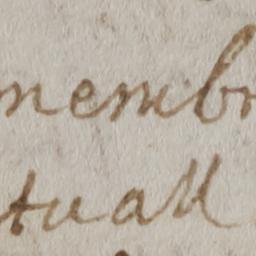 membr
tuall